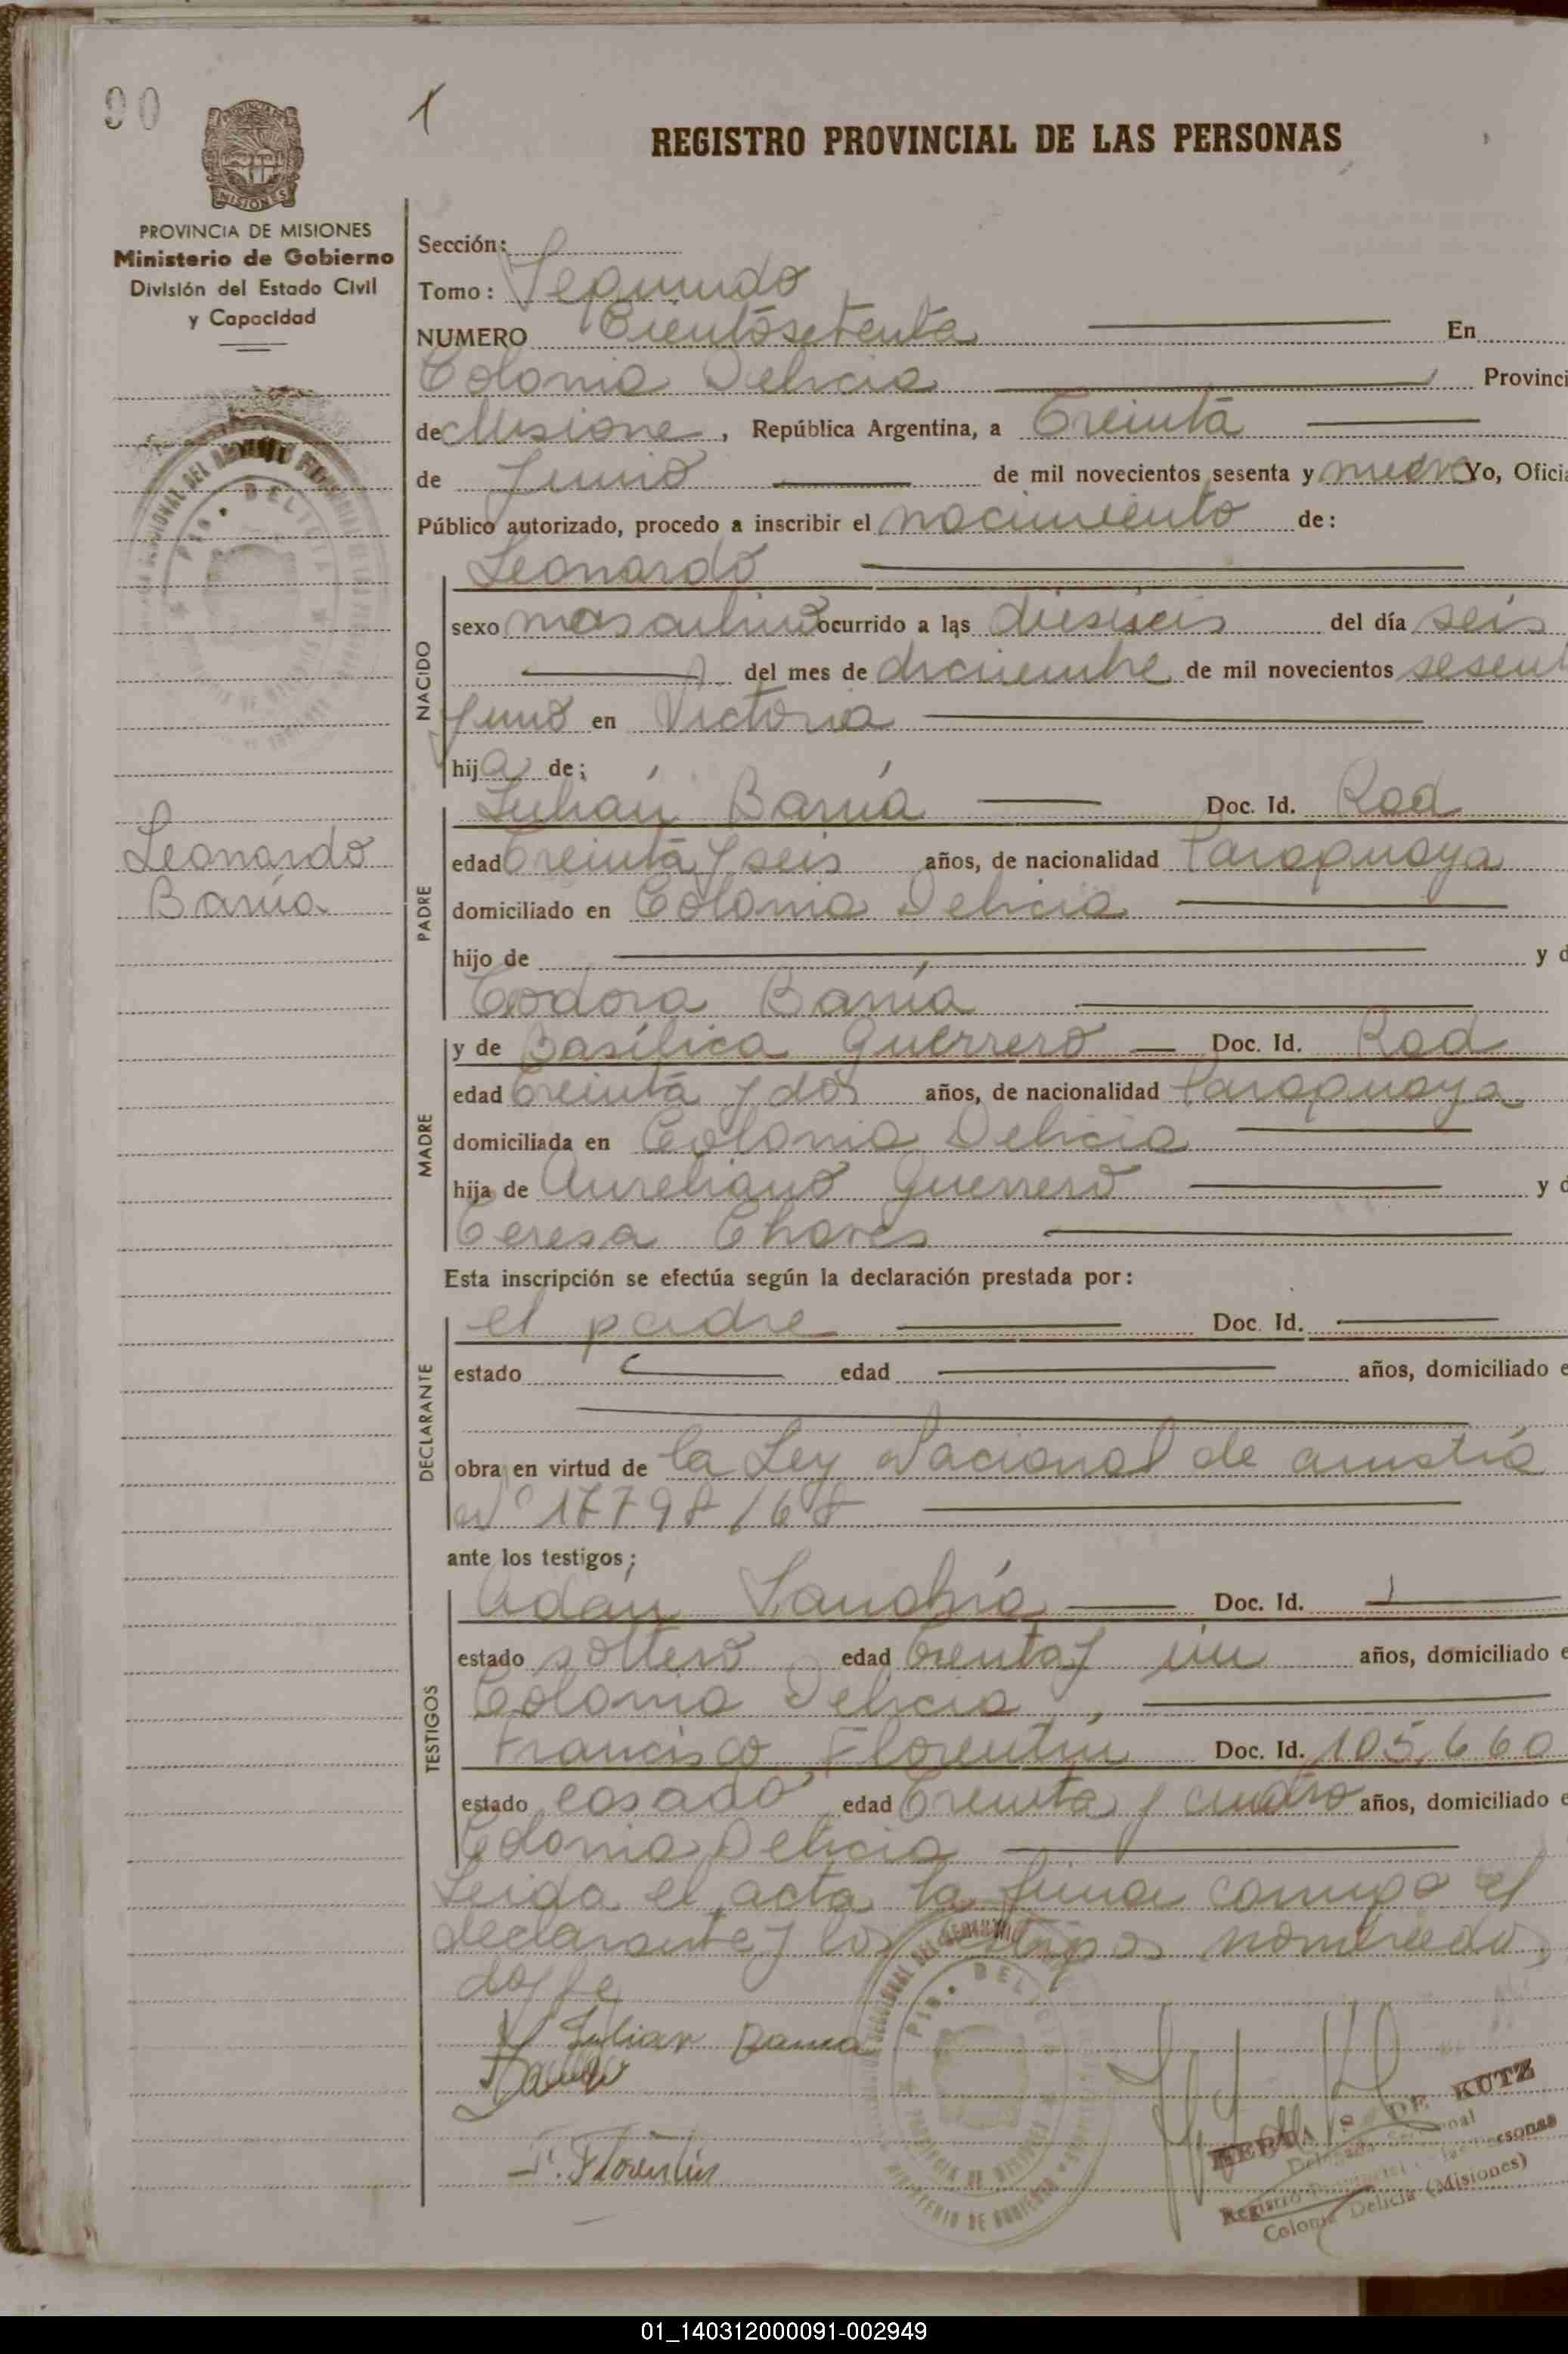 90
1
REGISTRO PROVINCIAL DE LAS PERSONAS
PROVINCIA DE MISIONES
Ministerio de Gobierno
División del Estado Civil
y Capacidad
Sección:
Tomo: Segundo
NUMERO Cientosetenta En
Colonia Delicia Provinci
de Misione, República Argentina, a Treinta
de Junio de mil novecientos sesenta y nueve Yo, Oficia
Público autorizado, procedo a inscribir el nacimiento de:
Leonardo
NACIDO
sexo masculino ocurrido a las diesiseis del día seis
del mes de diciembre de mil novecientos sesent
y uno en Victoria
hija de;
PADRE
Julián Barúa Doc. Id. Rad
edad treinta y seis años, de nacionalidad Paraguaya
domiciliado en Colonia Delicia
hijo de y d
Teodora Barúa
Leonardo
Barúa
MADRE
y de Basílica Guerrero Doc. Id. Rad
edad treinta y dos años, de nacionalidad Paraguaya
domiciliada en Colonia Delicia
hija de Aureliano Guerrero y d
Teresa Chaves
Esta inscripción se efectúa según la declaración prestada por:
DECLARANTE
el padre Doc. Id.
estado edad años, domiciliado e
obra en virtud de la Ley Nacional de amistía
Nº 17798/68
ante los testigos;
TESTIGOS
Adán Doc. Id.
estado soltero edad treinta y un años, domiciliado e
Colonia Delicia,
Francisco Florentín Doc. Id. 105,660
estado casado edad treinta y cuatro años, domiciliado e
Colonia Delicia
Leida el acta la firma conmigo el
declarante y los testigos nombrados,
doy fe
Julian Barua
F. Florentin
S. DE KUTZ
Registro Provincial de las Personas
Colonia Delicia (Misiones)
PROVINCIA DE MISIONES
MINISTERIO DE GOBIERNO
01_140312000091-002949